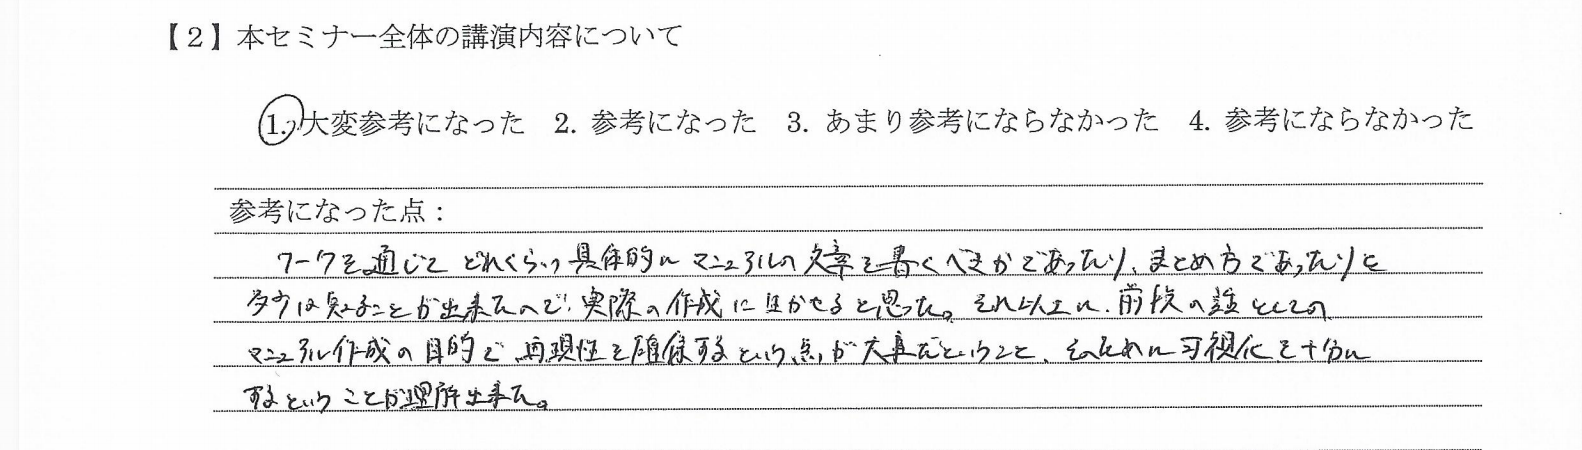 【2】本セミナー全体の講演内容について
1. 大変参考になった 2. 参考になった 3. あまり参考にならなかった 4. 参考にならなかった
参考になった点：
ワークを通じて どれくらい具体的に マニュアルの文章を書くべきかであったり、まとめ方であったりを
多少は知ることが出来たので、実際の作成に生かせると思った。それ以上に、前段の話としての
マニュアル作成の目的で 再現性を確保するという点が大事だということ、そのために可視化を十分に
するということが理解出来た。